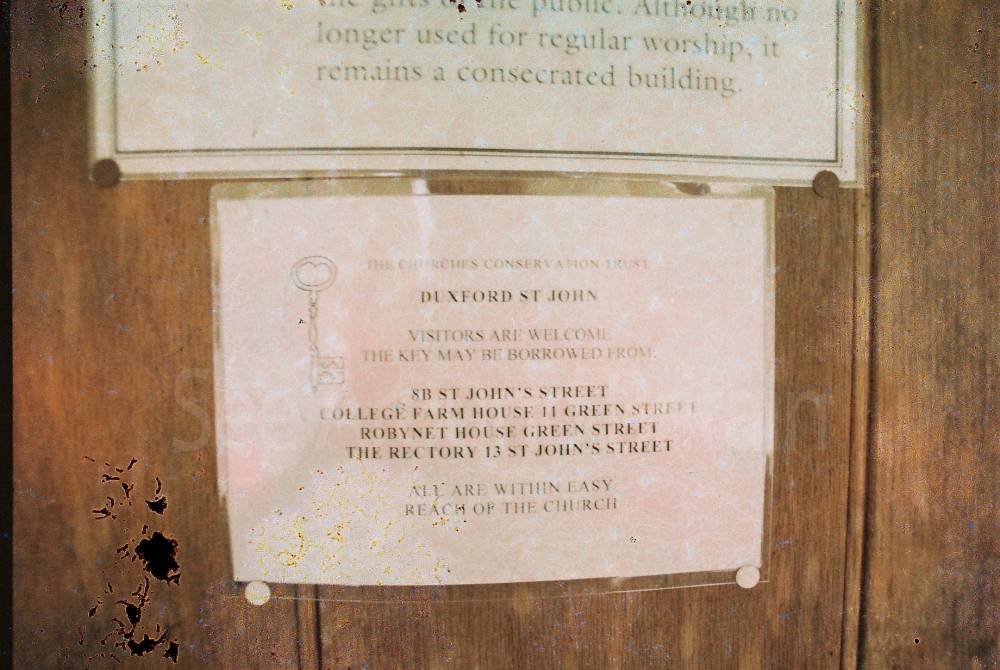 the gifts of the public. Although no
longer used for regular worship, it
remains a consecrated building.
THE CHURCHES CONSERVATION TRUST
DUXFORD ST JOHN
VISITORS ARE WELCOME
THE KEY MAY BE BORROWED FROM:
8B ST JOHN'S STREET
COLLEGE FARM HOUSE 11 GREEN STREET
ROBYNET HOUSE GREEN STREET
THE RECTORY 13 ST JOHN'S STREET
ALL ARE WITHIN EASY
REACH OF THE CHURCH